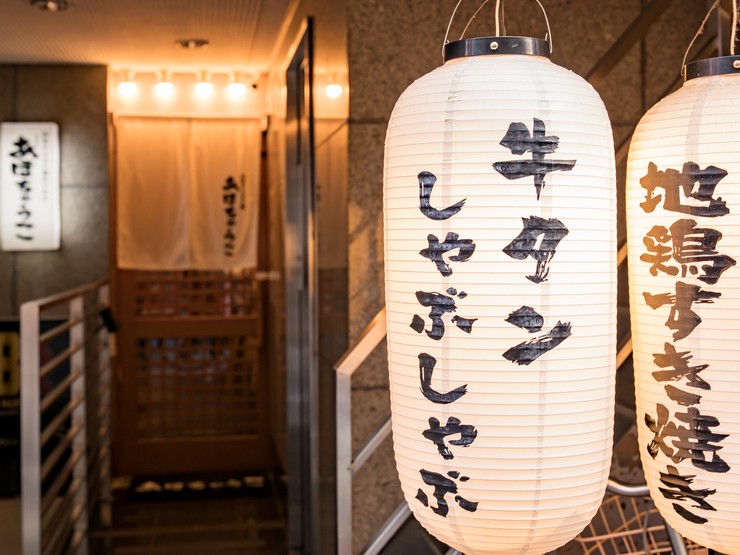 牛タン
しゃぶしゃぶ
地鶏すき焼き
あほちょうこ
あほちょうこ